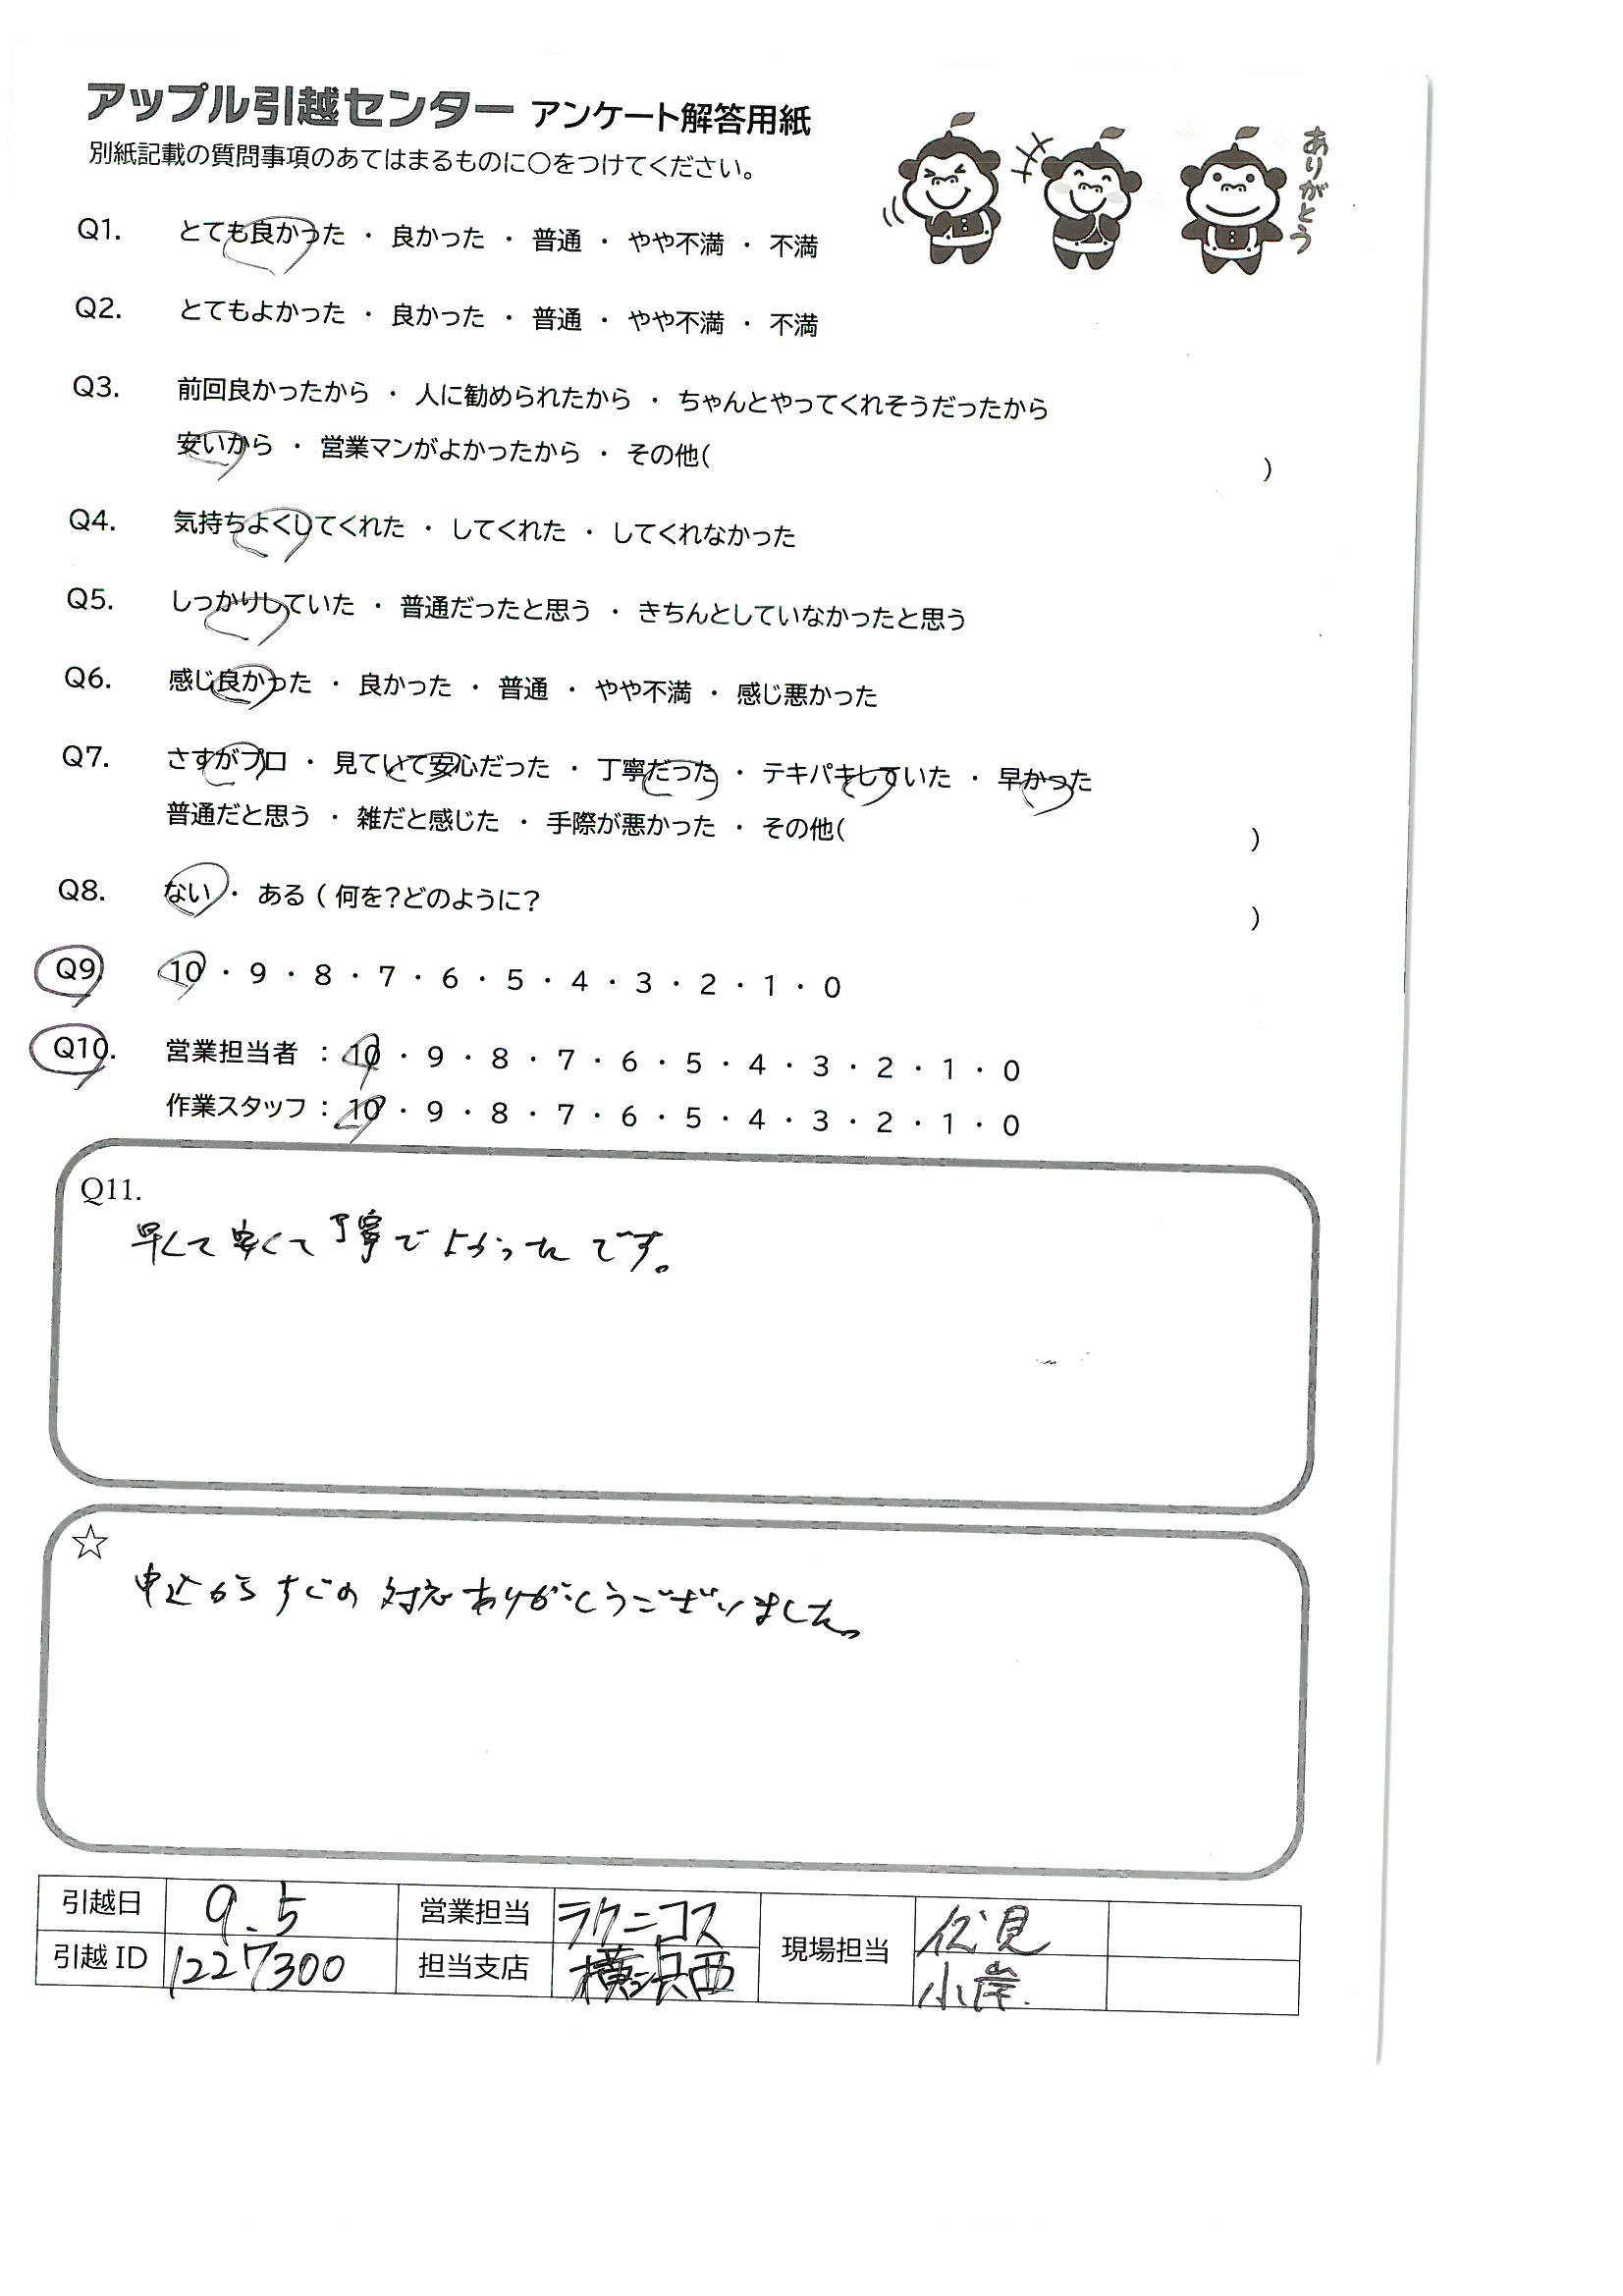 アップル引越センター アンケート解答用紙
別紙記載の質問事項のあてはまるものに〇をつけてください。
ありがとう
Q1. とても良かった ・ 良かった ・ 普通 ・ やや不満 ・ 不満
Q2. とてもよかった ・ 良かった ・ 普通 ・ やや不満 ・ 不満
Q3. 前回良かったから ・ 人に勧められたから ・ ちゃんとやってくれそうだったから
安いから ・ 営業マンがよかったから ・ その他( )
Q4. 気持ちよくしてくれた ・ してくれた ・ してくれなかった
Q5. しっかりしていた ・ 普通だったと思う ・ きちんとしていなかったと思う
Q6. 感じ良かった ・ 良かった ・ 普通 ・ やや不満 ・ 感じ悪かった
Q7. さすがプロ ・ 見ていて安心だった ・ 丁寧だった ・ テキパキしていた ・ 早かった
普通だと思う ・ 雑だと感じた ・ 手際が悪かった ・ その他( )
Q8. ない ・ ある ( 何を?どのように? )
Q9. 10 ・ 9 ・ 8 ・ 7 ・ 6 ・ 5 ・ 4 ・ 3 ・ 2 ・ 1 ・ 0
Q10. 営業担当者 : 10 ・ 9 ・ 8 ・ 7 ・ 6 ・ 5 ・ 4 ・ 3 ・ 2 ・ 1 ・ 0
作業スタッフ : 10 ・ 9 ・ 8 ・ 7 ・ 6 ・ 5 ・ 4 ・ 3 ・ 2 ・ 1 ・ 0
Q11.
早くて安くて丁寧でよかったです。
☆
申込からすぐの対応ありがとうございました。
引越日 9.5 営業担当 ラクニコス 現場担当 伏見
引越ID 1227300 担当支店 横浜西 小岸.